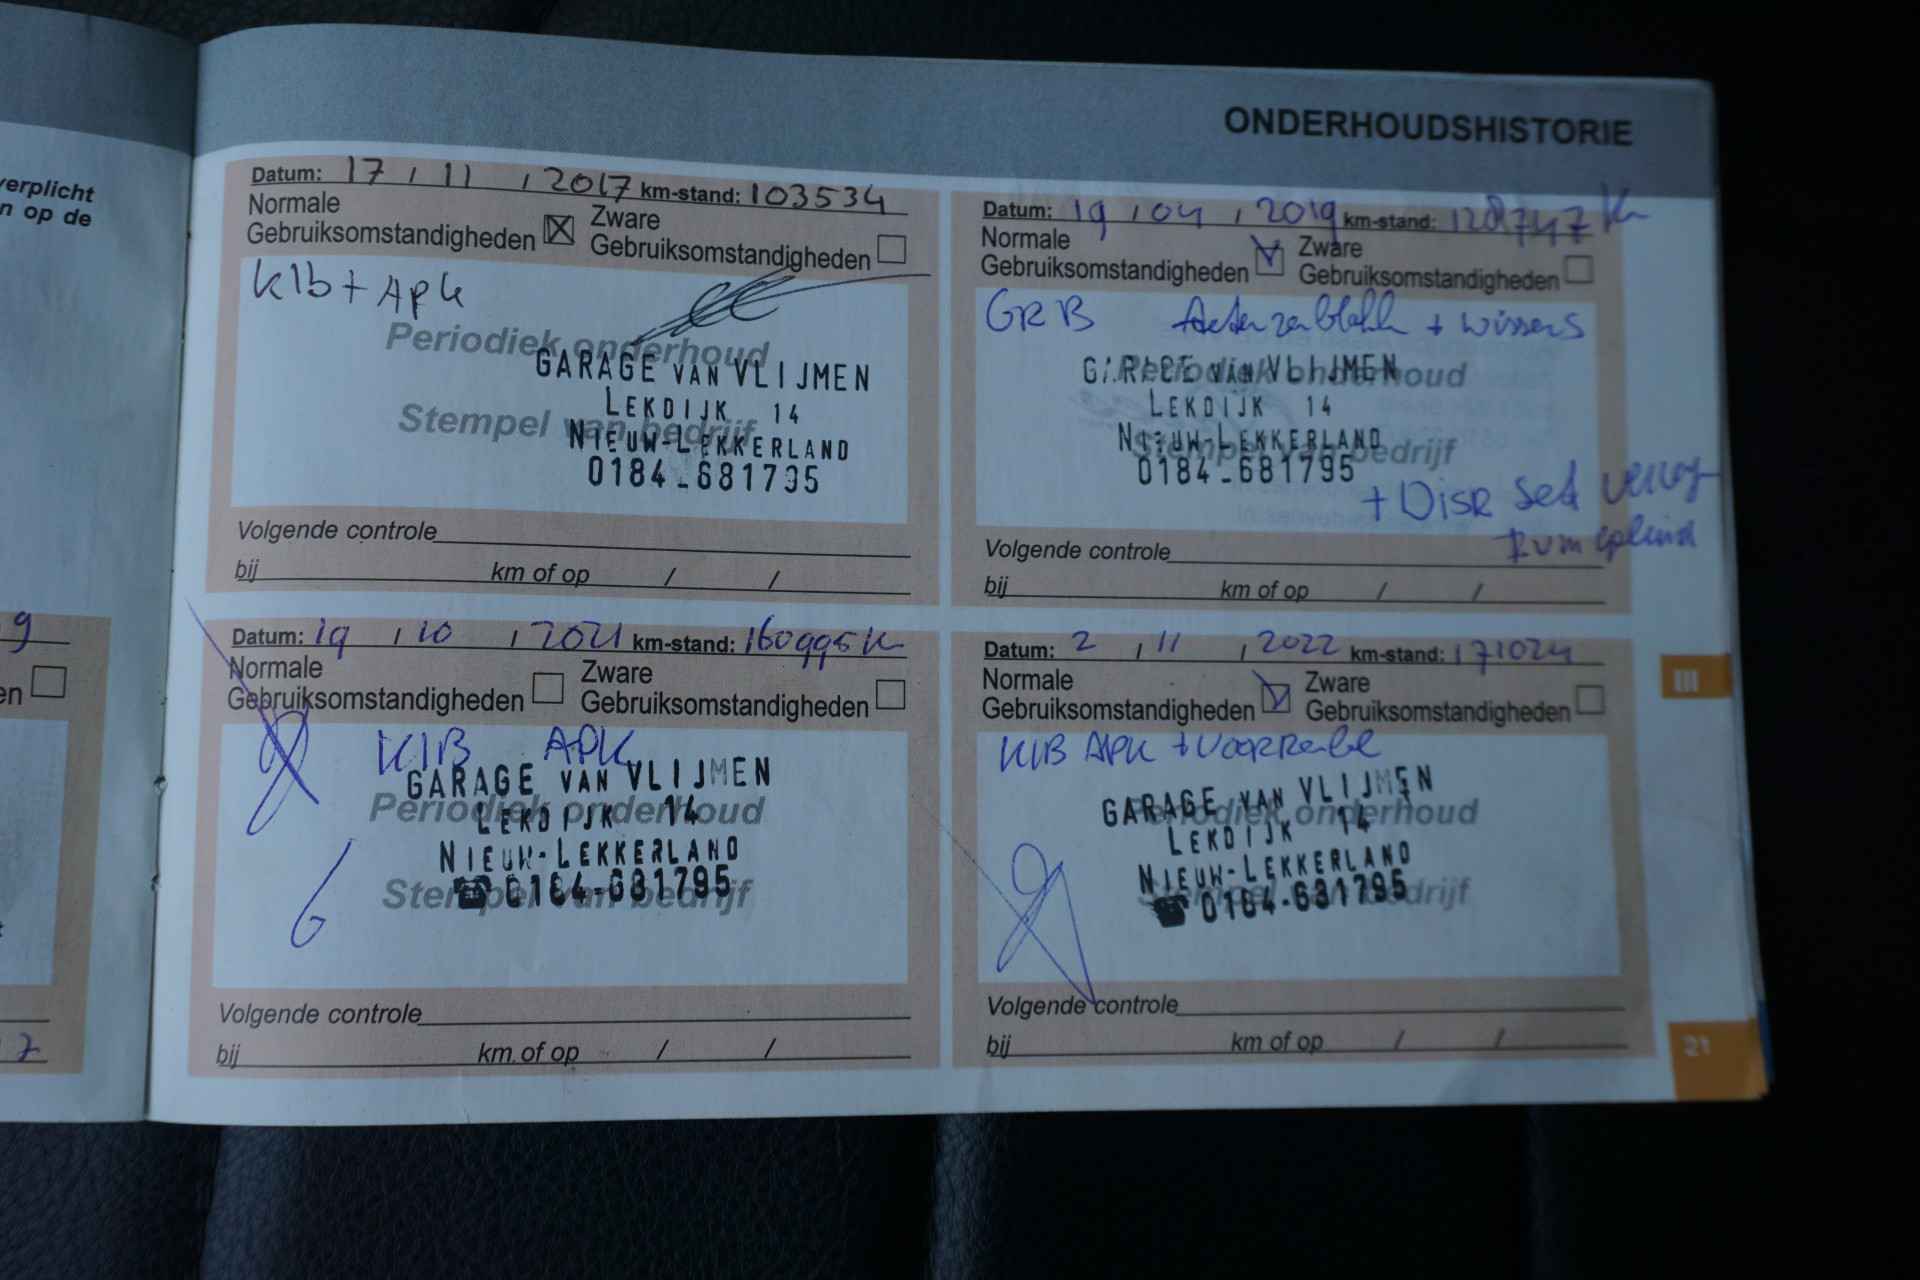 ONDERHOUDSHISTORIE
verplicht
n op de
g
en
7
Datum: 17 / 11 / 2017 km-stand: 103534
Normale
Gebruiksomstandigheden
Zware
Gebruiksomstandigheden
Klb + Apk
Periodiek onderhoud
GARAGE VAN VLIJMEN
LEKDIJK 14
Stempel van bedrijf
NIEUW-LEKKERLAND
0184-681795
Volgende controle
bij km of op / /
Datum: 19 / 04 / 2019 km-stand: 128747 K
Normale
Gebruiksomstandigheden
Zware
Gebruiksomstandigheden
GRB + wissers
GARAGE VAN VLIJMEN
Periodiek onderhoud
LEKDIJK 14
NIEUW-LEKKERLAND
Stempel van bedrijf
0184-681795
+ Disr set
Volgende controle
bij km of op / /
Datum: 19 / 10 / 2021 km-stand: 160995 K
Normale
Gebruiksomstandigheden
Zware
Gebruiksomstandigheden
KlB APK
GARAGE VAN VLIJMEN
Periodiek onderhoud
LEKDIJK 14
NIEUW-LEKKERLAND
Stempel van bedrijf
0184-681795
Volgende controle
bij km of op / /
Datum: 2 / 11 / 2022 km-stand: 171024
Normale
Gebruiksomstandigheden
Zware
Gebruiksomstandigheden
KlB APK +
GARAGE VAN VLIJMEN
Periodiek onderhoud
LEKDIJK 14
NIEUW-LEKKERLAND
Stempel van bedrijf
0184-681795
Volgende controle
bij km of op / /
III
21